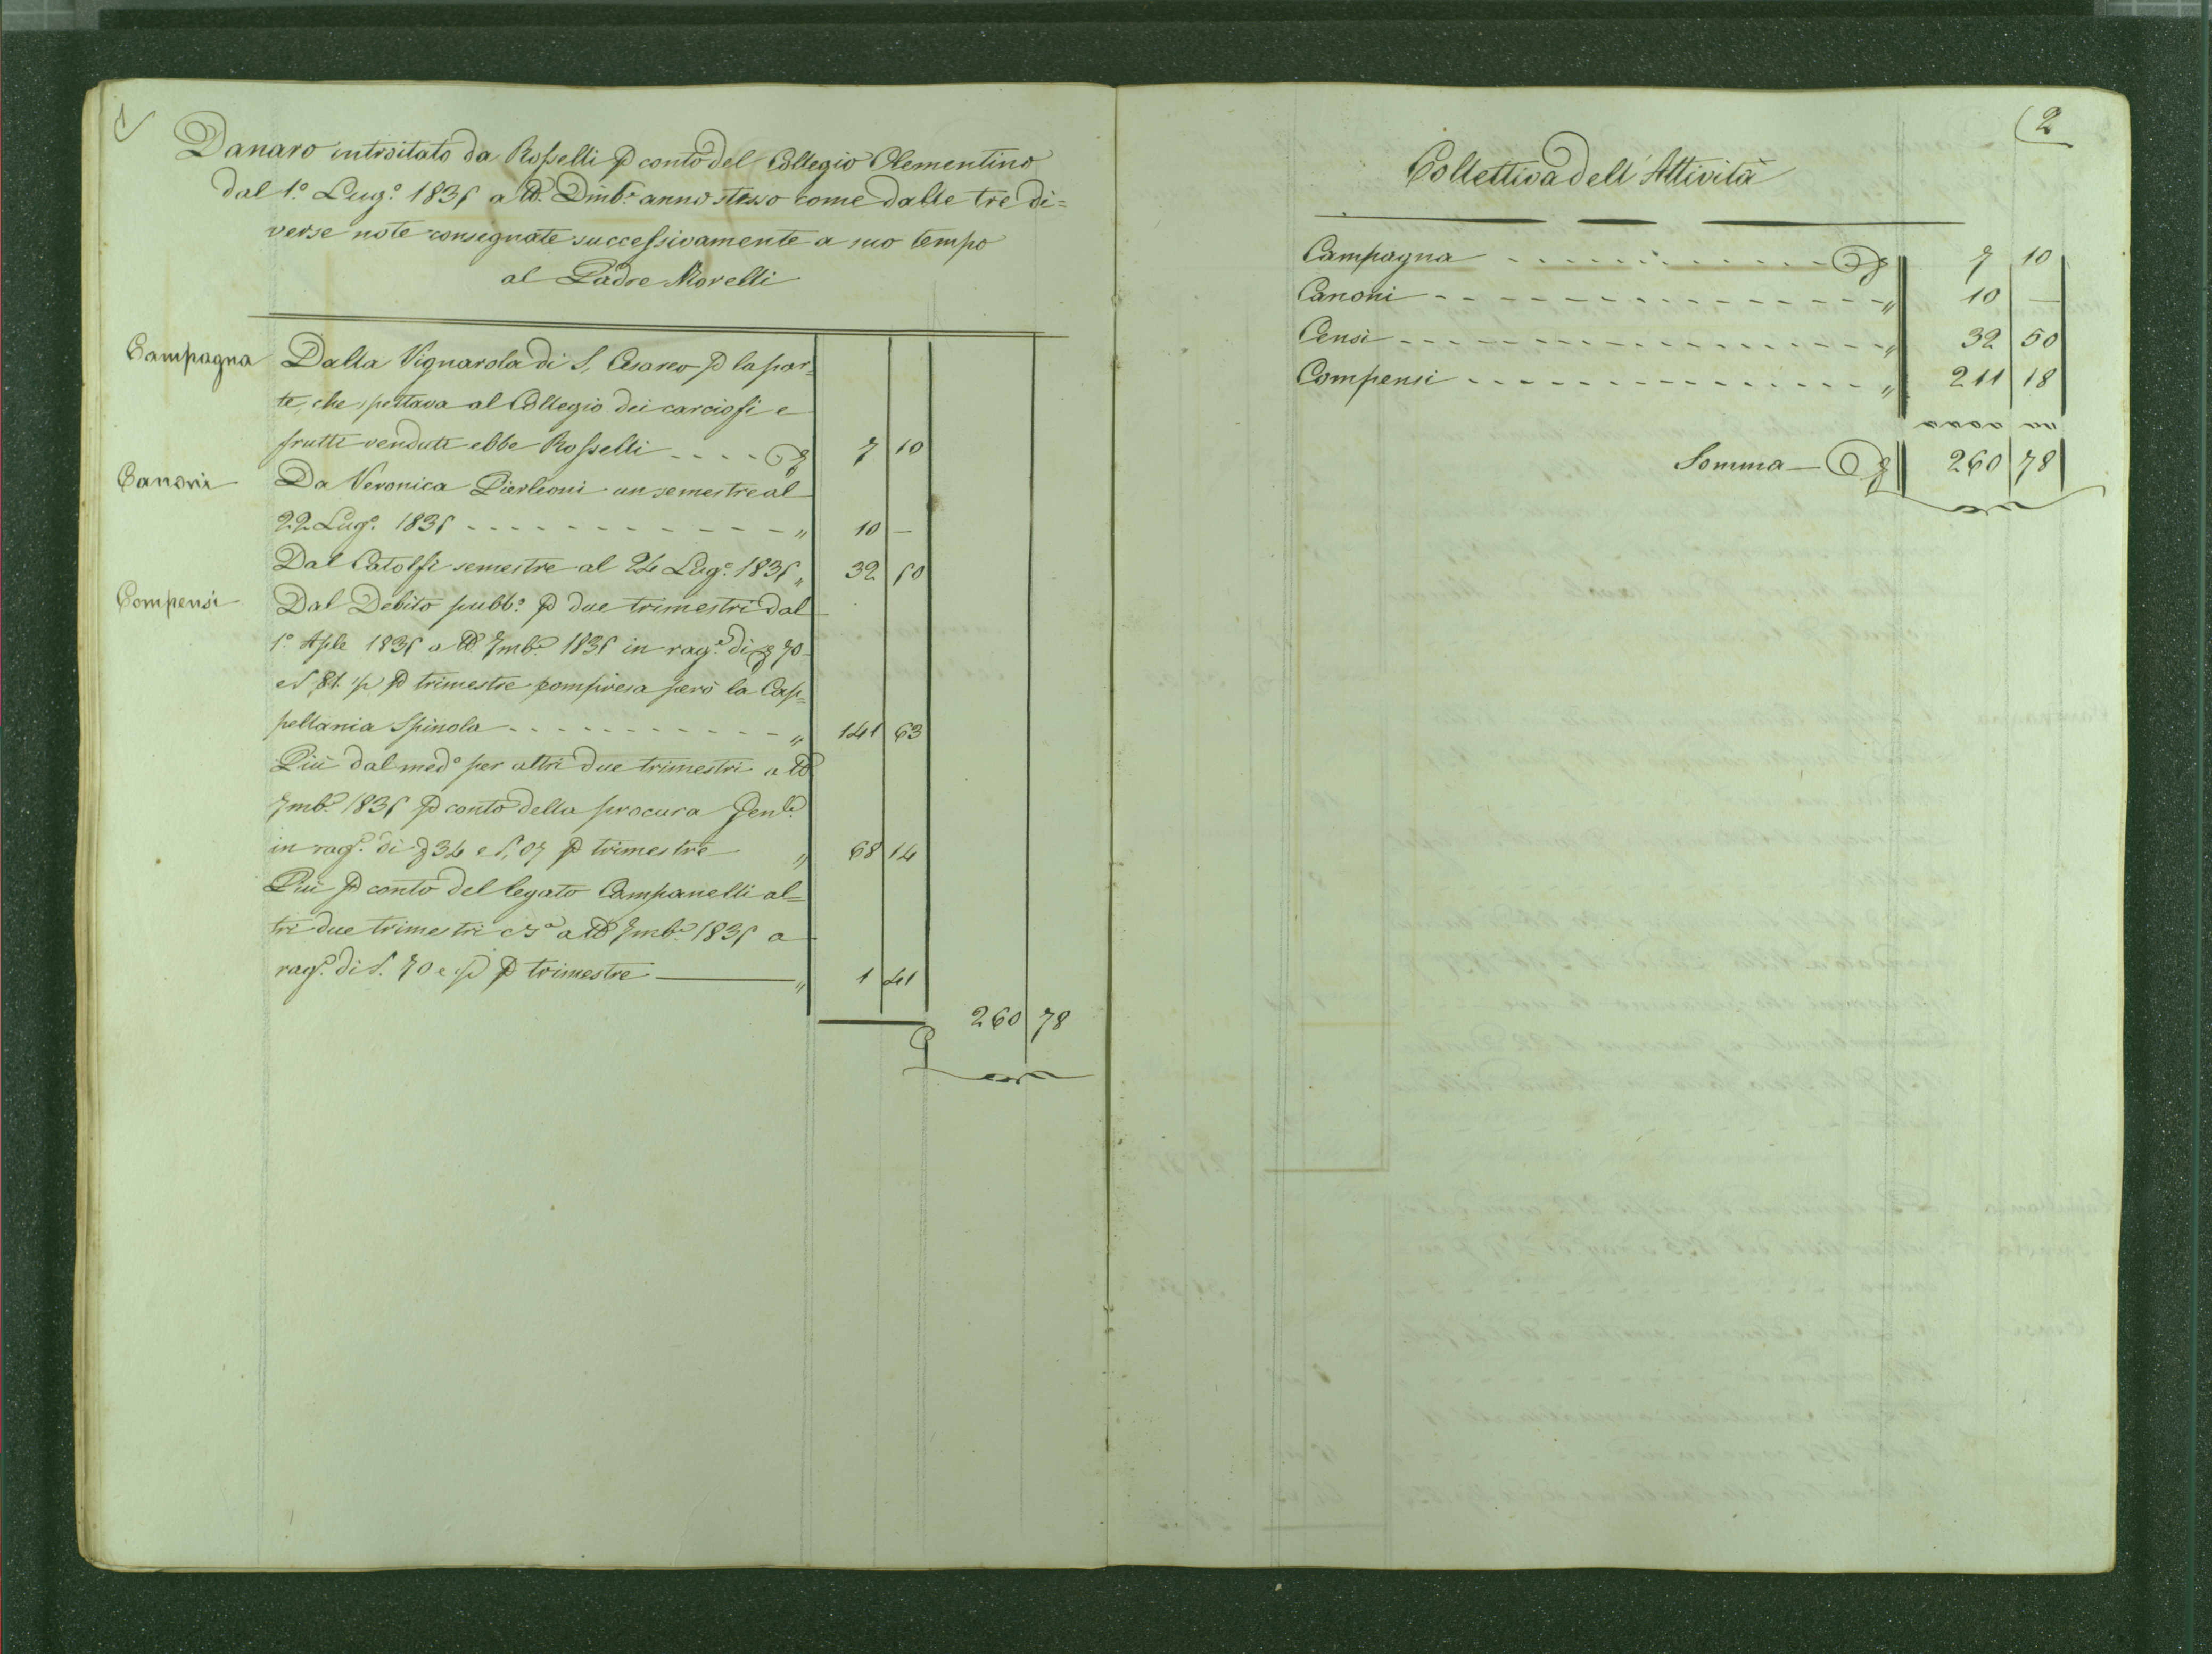 1
Danaro introitato da Rosselli p conto del Collegio Clementino
dal 1.º Lug.º 1835 a tt.º Dmb.e anno stesso come dalle tre di=
verse note consegnate successivamente a suo tempo
al Padre Morelli
Campagna Dalla Vignarola di S. Cesareo p la par=
te, che spettava al Collegio dei carciofi e
frutti venduti ebbe Rosselli - - - - 7 10
Canoni Da Veronica Pierleoni un semestre al
22 Lug.º 1835 - - - - - - - - - - - - „ 10 —
Dal Catolfi semestre al 24 Lug.º 1835 „ 32 50
Compensi Dal Debito pubb.º p due trimestri dal
1.º Aple 1835 a tt.º 7mb.e 1835 in rag.e di 70
e 81 p trimestre compresa però la Cap=
pellania Spinola - - - - - - - - - - - „ 141 63
Più dal med.º per altri due trimestri a tt.º
7mb.e 1835 p conto della procura Gen.le
in rag.e di 34 e 07 p trimestre „ 68 14
Più p conto del legato Campanelli al=
tri due trimestri a tt.º 7mb.e 1835 a
rag.e di 70 e p trimestre — „ 1 41
260 78
2
Collettiva dell'Attività
Campagna - - - - - - - - - - - - 7 10
Canoni - - - - - - - - - - - - - - „ 10 —
Censi - - - - - - - - - - - - - - - „ 32 50
Compensi - - - - - - - - - - - - - „ 211 18
Somma — 260 78